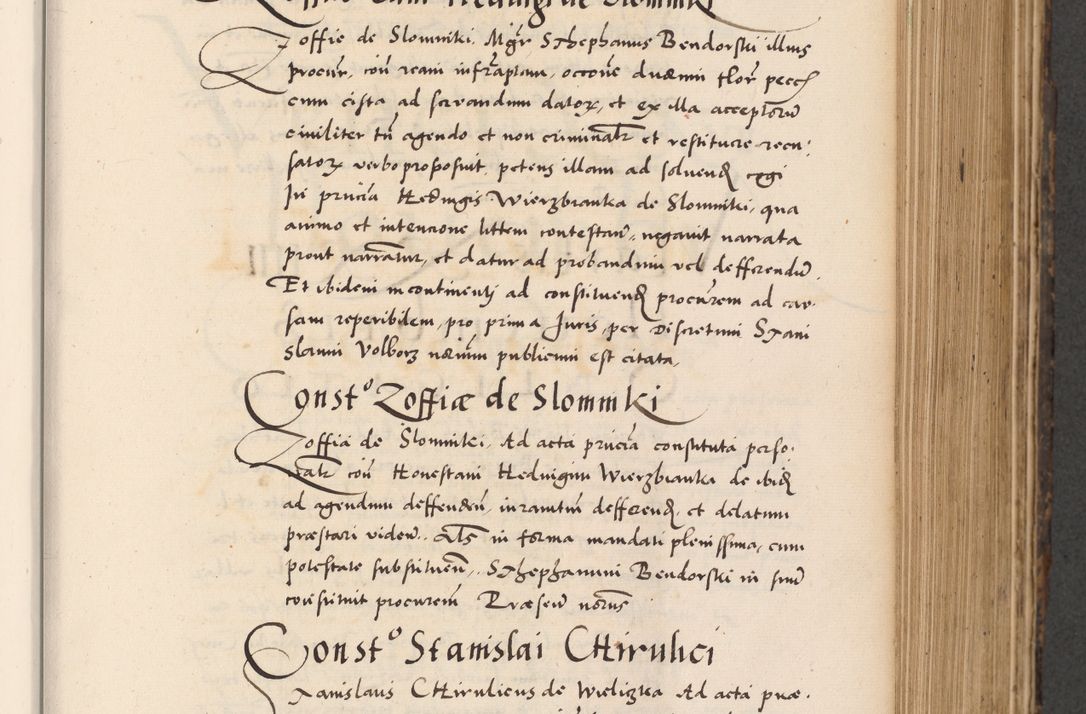 Zoffie de Slomniki. Mgr̃ Sthephanus Bendorski illius
procur̃, con̄ ream infrãptam, occoñe duarum flor̃ pecc̃
cum cista ad servandum datoꝝ, et ex illa acceptorũ
civiliter tñ agendo et non criminalr̃ et restituere recu-
satoꝝ verbo proposuit. petens illam ad solvenđ cogi
In pñcia Hedvigis Wierzbianka de Slomniki, qua
animo et intencione littem contestañ, negavit narrata
prout narrãtur, et datur ad probandum vel defferendũ.
Et ibidem incontinenti ad constituenđ procur̃em ad cau-
sam reperibilem, pro prima Juris, per Discretum Stani
slaum Volborz nr̃ium publicum est citata,
Const⁰ Zoffiæ de Slomniki
Zoffia de Slomniki, Ad acta pñcia constituta perso-
nalr̃ con̄ Honestam Hedvigim Wierzbianka de ibiđ
ad agendum deffendeñ, iuramtum defferenđ, et delatum
præstari videñ, als̃ in forma mandati plenissima, cum
potestate substitueñ, Sthephanum Bendorski in suũ
constituit procur̃em Præseñ
Const⁰ Stanislai Cthirulici
Stanislaus Cthirulicus de Wielizka Ad acta præ-